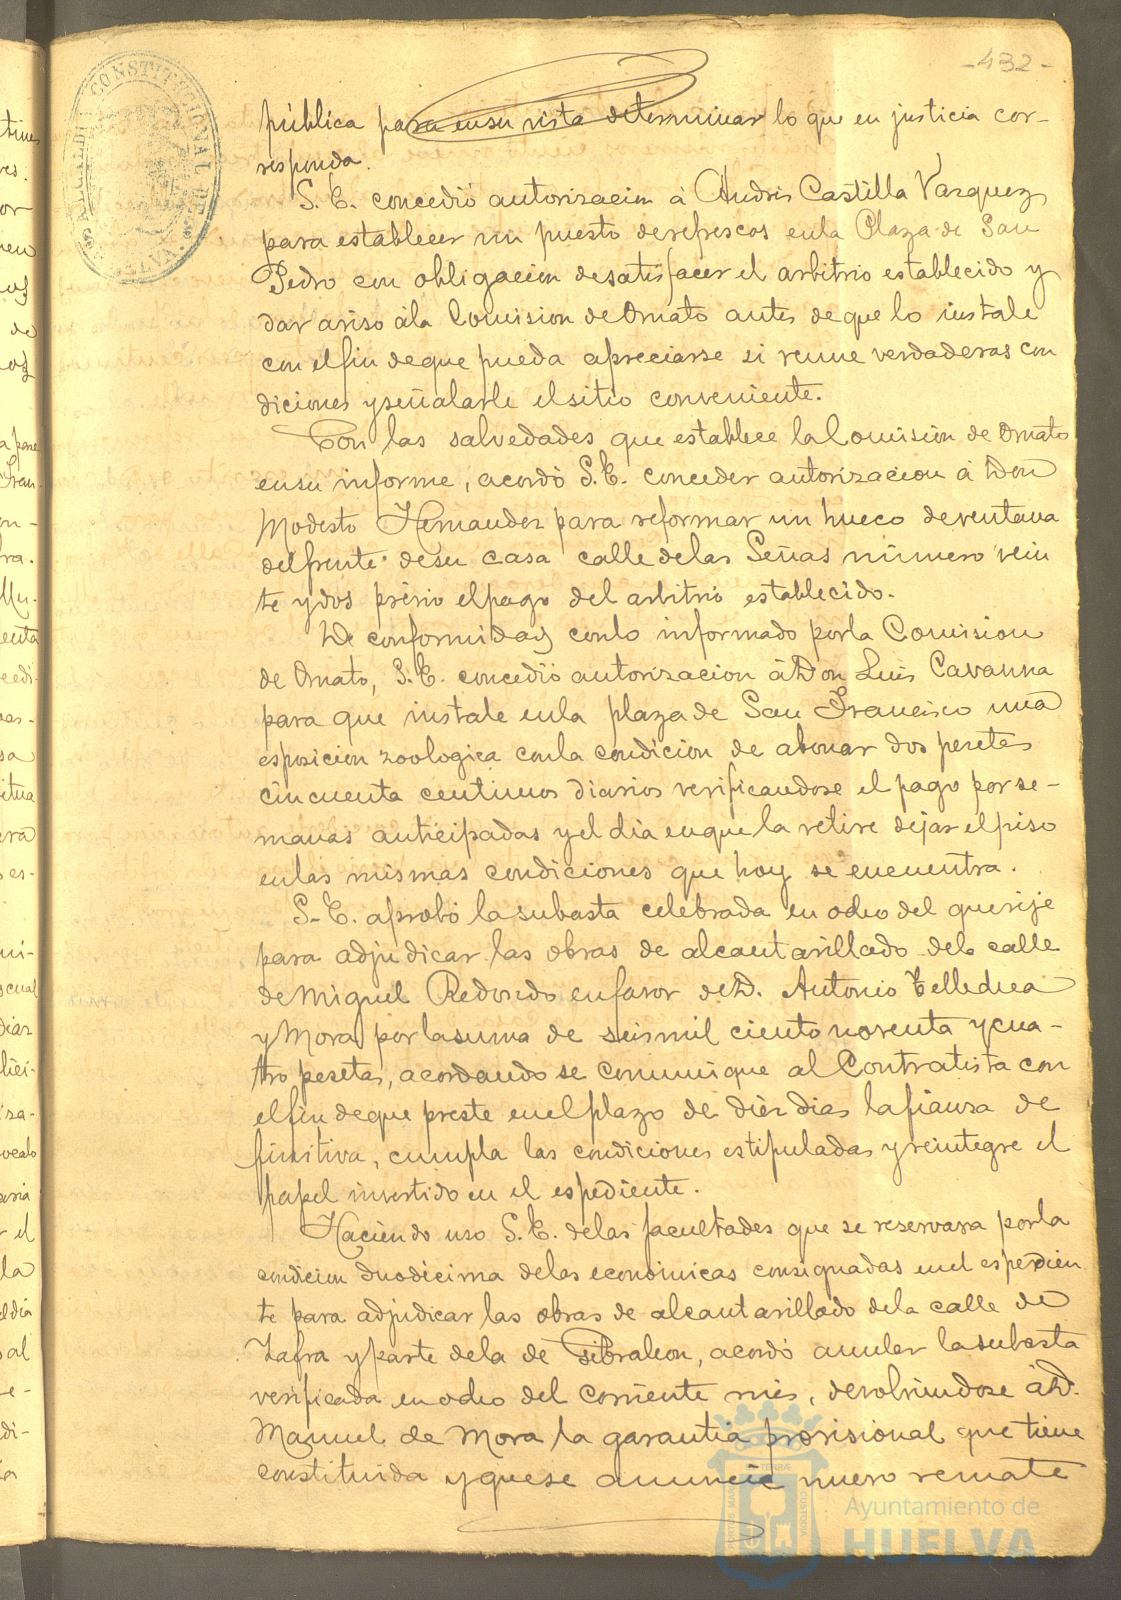 -432-
ALCALDIA CONSTITUCIONAL DE
pública para en su vista determinar lo que en justicia cor-
responda.
S. E. concedió autorizacion á Andrés Castilla Vazquez
para establecer un puesto de refrescos en la Plaza de San
Pedro con obligacion de satisfacer el arbitrio establecido y
dar aviso á la Comision de Ornato antes de que lo instale
con el fin de que pueda apreciarse si reune verdaderas con
diciones y señalarle el sitio conveniente.
Con las salvedades que establece la Comisión de Ornato
en su informe, acordó S. E. conceder autorizacion á Don
Modesto Hernandez para reformar un hueco de ventana
del frente de su casa calle de las Señas número vein
te y dos prévio el pago del arbitrio establecido.
De conformidad con lo informado por la Comision
de Ornato, S. E. concedió autorizacion á Don Luis Cavanna
para que instale en la plaza de San Francisco una
esposicion zoologica con la condicion de abonar dos pesetas
cincuenta centimos diarios verificandose el pago por se-
manas anticipadas y el dia en que la retire dejar el piso
en las mismas condiciones que hoy se encuentra.
S. E. aprobó la subasta celebrada en ocho del que rije
para adjudicar las obras de alcantarillado de la calle
de Miguel Redondo en favor de D. Antonio
y Mora por la suma de seis mil ciento noventa y cua-
tro pesetas, acordando se comunique al Contratista con
el fin de que preste en el plazo de diez dias la fianza de
finitiva, cumpla las condiciones estipuladas y reintegre el
papel invertido en el espediente.
Haciendo uso S. E. de las facultades que se reservara por la
condicion duodécima de las económicas consignadas en el espedien
te para adjudicar las obras de alcantarillado de la calle de
Zafra y parte de la de Gibraleon, acordó anular la subasta
verificada en ocho del corriente mes, devolviendose á D.
Manuel de Mora la garantia provisional que tiene
constituida y que se anuncie nuevo remate
Ayuntamiento de
HUELVA